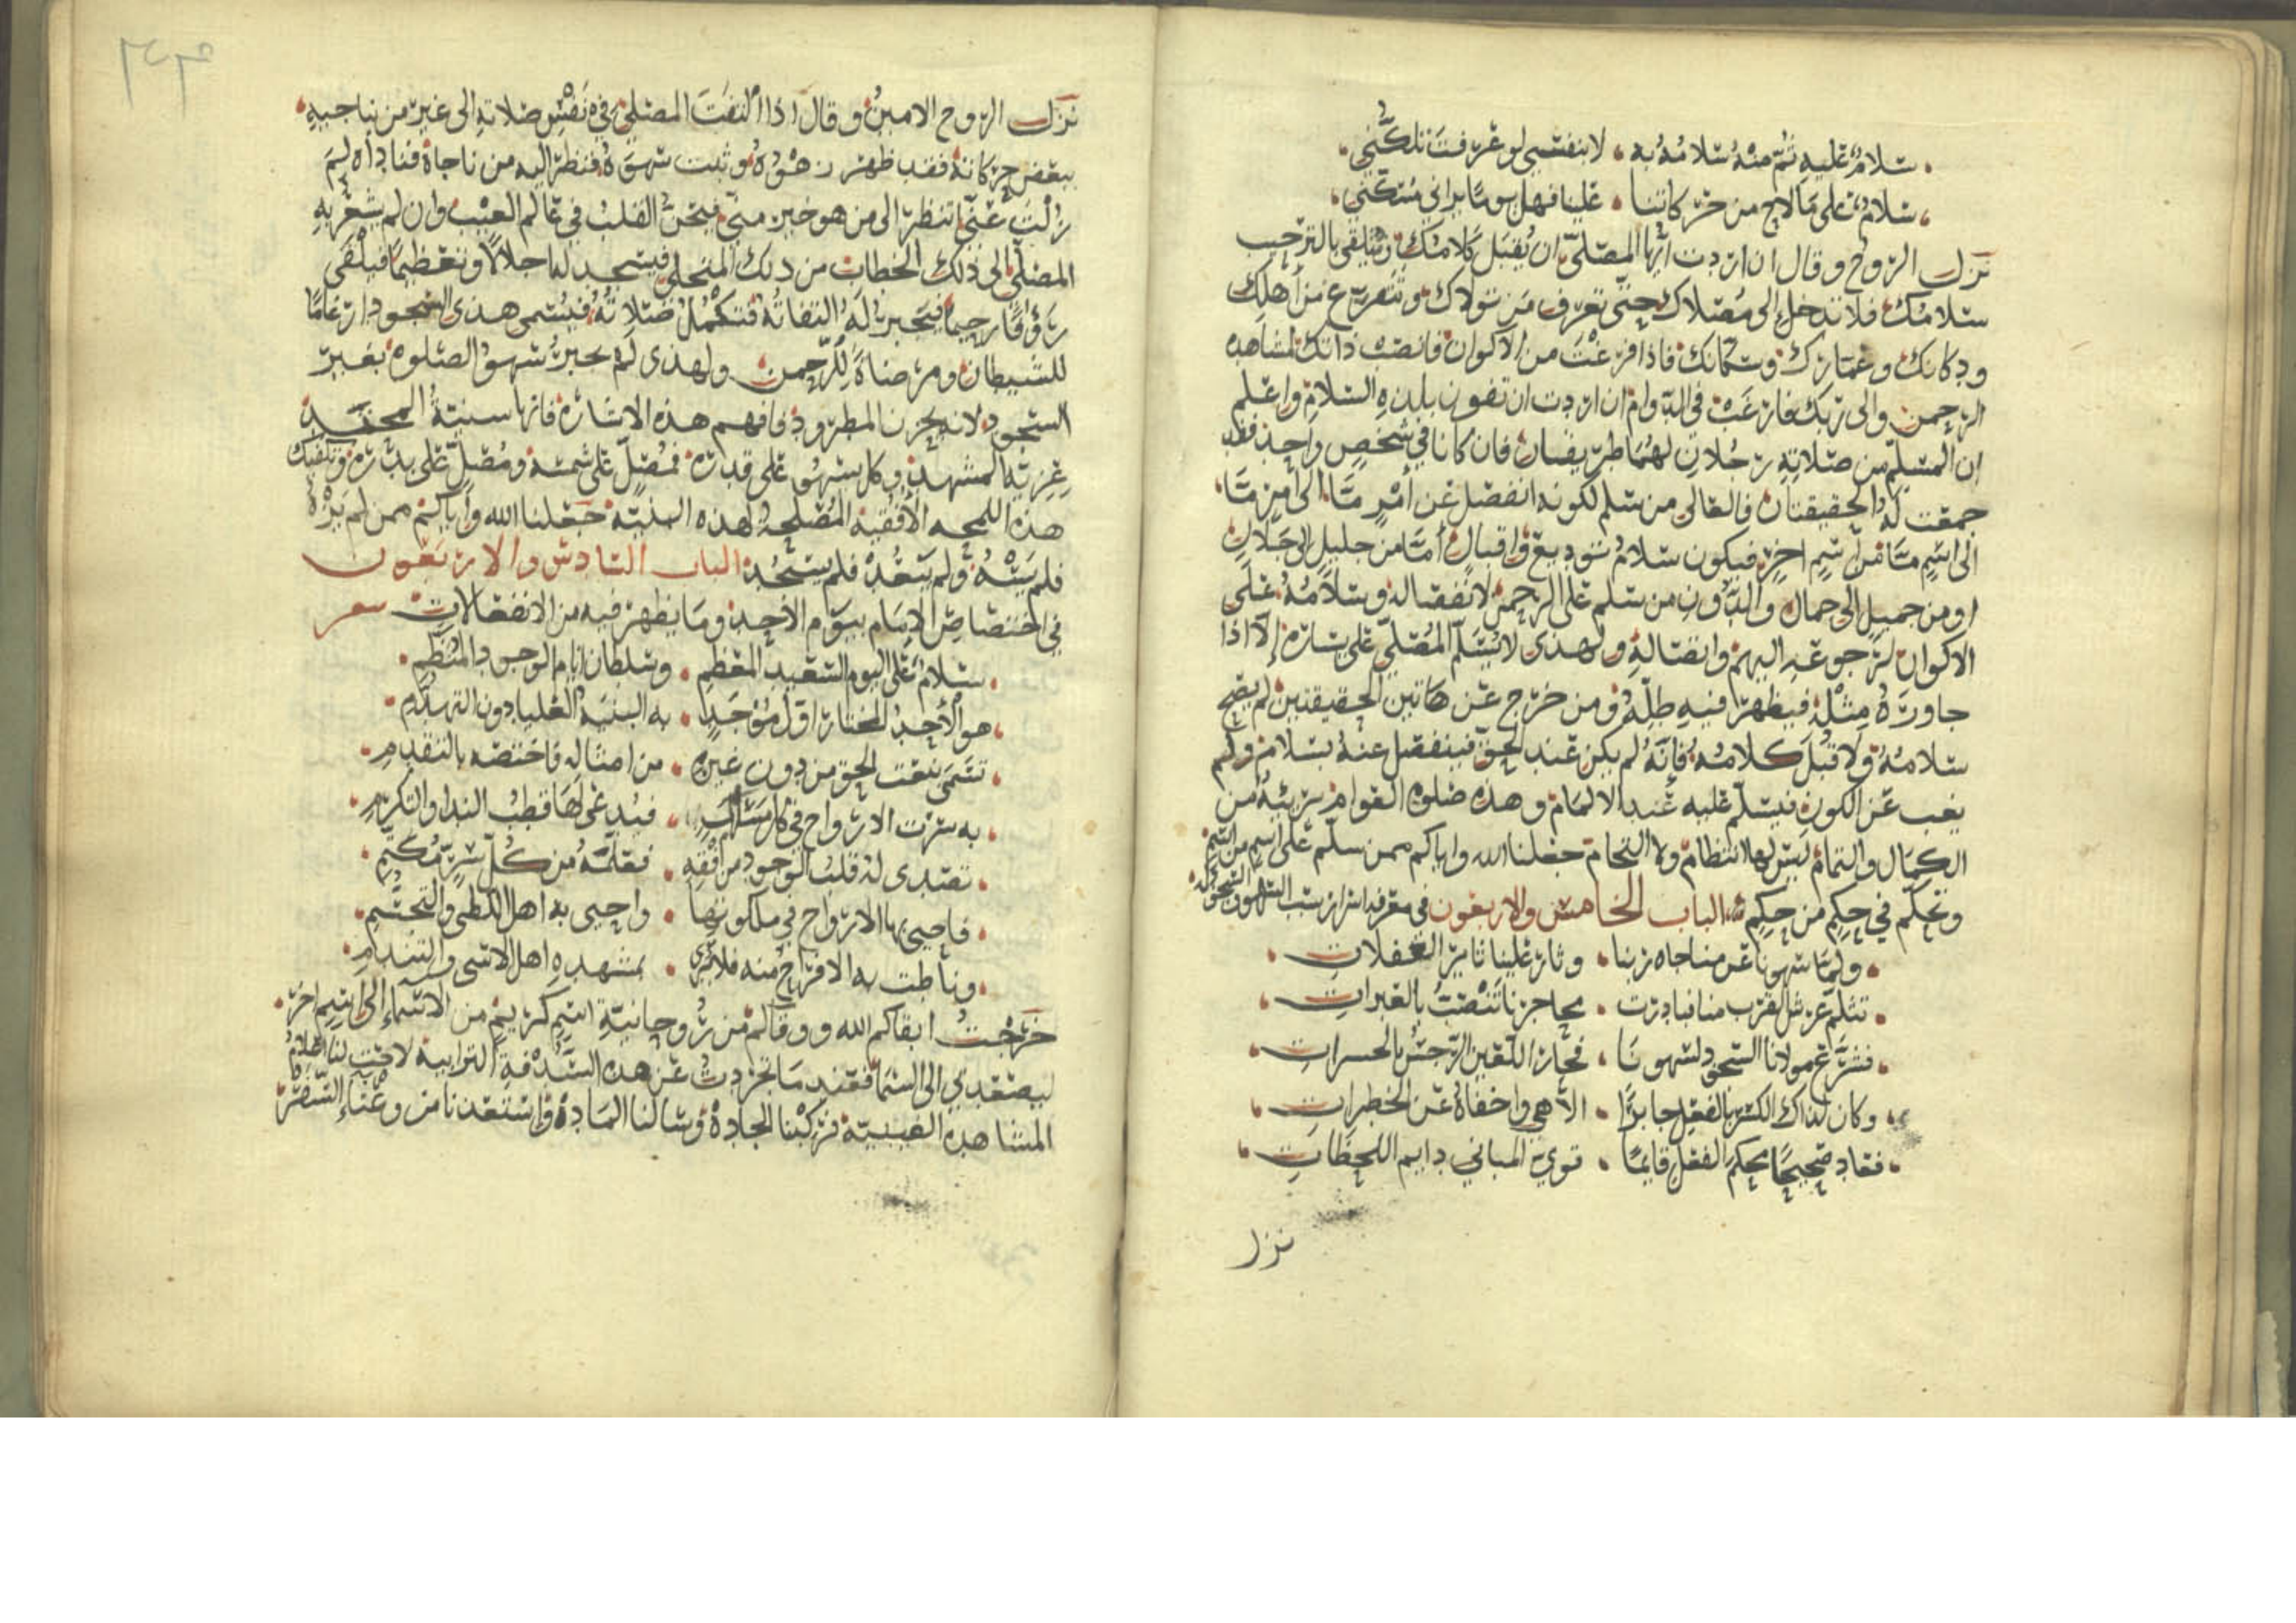 سلام عليه ثم منه سلامه به • لا بنفسي لو عرفت تلكني
سلام على ما لاح من حركاتنا • علينا فهل يوما يراني متكني
نزل الروح وقال ان اردت ايها المصلي ان يقبل كلامك ويتلقى بالترحيب
سلامك فلا تدخل الى مصلاك حتى تعرف من تولاك وتتفرغ من أهلك
ودكانك وعمارك وسكانك فاذا فرغت من الاكوان فانصب ذاتك لمشاهده
الرحمن والى ربك فارغب في الدوام ان اردت ان تفوز بلذه السلام واعلم
ان المسلم من صلاته رجلان لهما طريقان فان كانا في شخص واحد فقد
جمعت له الحقيقتان فالعالى من سلم لكونه انفصل عن أمر ما الى امر ما
الى اسم ما من اسم اخر فيكون سلام توديع واقبال أما من جليل الى جلال
او من جميل الى جمال والدون من سلم على الرحمن لانفصاله وسلامه على
الاكوان لرجوعه اليهم واتصاله ولهذى لا يسلم المصلي على يساره إلا اذا
جاوره مثله فيظهر فيه ظله ومن خرج عن هاتين الحقيقتين لم يصح
سلامه ولا قبل كلامه فإنه لم يكن عند الحق فينفصل عنه بسلام ولم
يغب عن الكون فيسلم عليه عند الالمام وهذه صلوه العوام بريئه من
الكمال والتمام ليس لها انتظام ولا التحام جعلنا الله واياكم ممن سلم على اسم من اسم
وتحكم في حكم من حكم الباب الخامس والاربعون في معرفه اسرار سبب السهو والسجود له
ولما سهونا عن مناجاه ربنا • وثار علينا ثاير الغفلات
تثلم عرش القرب منا فبادرت • محاجرنا تنصب بالعبرات
فشرع مولانا السجود لسهونا • فحار اللعين الرجس بالحسرات
وكان لذاك الكسر بالفعل جابرا • الاهي واخفاه عن الخطرات
فعاد صحيحا محكم الفعل قايما • قوي المباني دايم اللحظات
نزل
نزل الروح الامين وقال اذا التفت المصلي في نفس صلاته الى غير من يناجيه
ببعض حركاته فقد ظهر زهوه وثبت سهوه فنظر اليه من ناجاه فناداه لم
زلت عني اتنظر الى من هو خير مني فيحن القلب في عالم الغيب وان لم يشعر به
المصلي الى ذلك الخطاب من ذلك المتجلى فيسجد له اجلالا وتعظيما فيلقى
رؤفا رحيما فيجبر له التفاته فتكمل صلاته فيسمى هذى السجود ارغاما
للشيطان ومرضاة للرحمن ولهذى لم يجبر سهو الصلوه بغير
السجود لانه يحزن المطرود فافهم هذه الاشاره فانها سنية المحتد
غزيته المشهد وكل سهو على قدره فمصل على شمسه ومصل على بدره وتكفيك
هذه اللمحه الأفقيه المصلحة لهذه البنيه جعلنا الله وأياكم ممن لم يره
فلم يسه ولم يبعد فلم يسجد الباب السادس والاربعون
في اختصاص الايام بيوم الأحد وما يظهر فيه من الانفعالات شعر
سلام على اليوم السعيد المعظم • وسلطان ايام الوجود المنظم
هو الأحد المختار اول موجد • به البنية العليا دون التهدم
تسمى بنعت الحق من دون غيره • من امثاله فاختصه بالتقدم
به سرت الارواح في كل مشهد • فيدعى لها قطب الندا والتكرم
تصدى له قلب الوجود من افقه • فعلمه من كل سر مكتم
فاحيى بها الارواح في ملكوتها • واحيى به اهل اللظى والتجشم
ونأطت به الافراح منه فلا ترى • بمشهده اهل الاسى والتندم
خرجت ابقاكم الله ووقاكم من روحانية اسم كريم من الاسماء إلى اسم اخر
ليصعد بي الى السما فعند ما تجردت عن هذه السدفة الترابيه لاحت لنا اعلام
المشاهده الغيبية فركبنا الجادة وسالنا المادة واستعدنا من وعثاء السفر